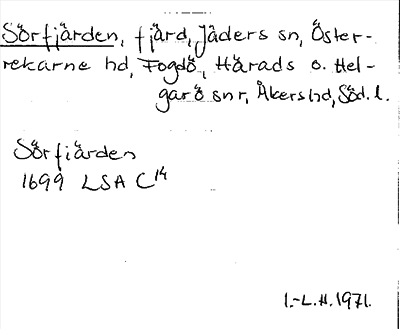 Sörfjärden, fjärd, Jäders sn, Öster-
rekarne hd, Fogdö, Härads o. Hel-
garö snr, Åkers hd, Söd. l.
Sörfjärden
1699 LSA C14
I.-L.H. 1971.